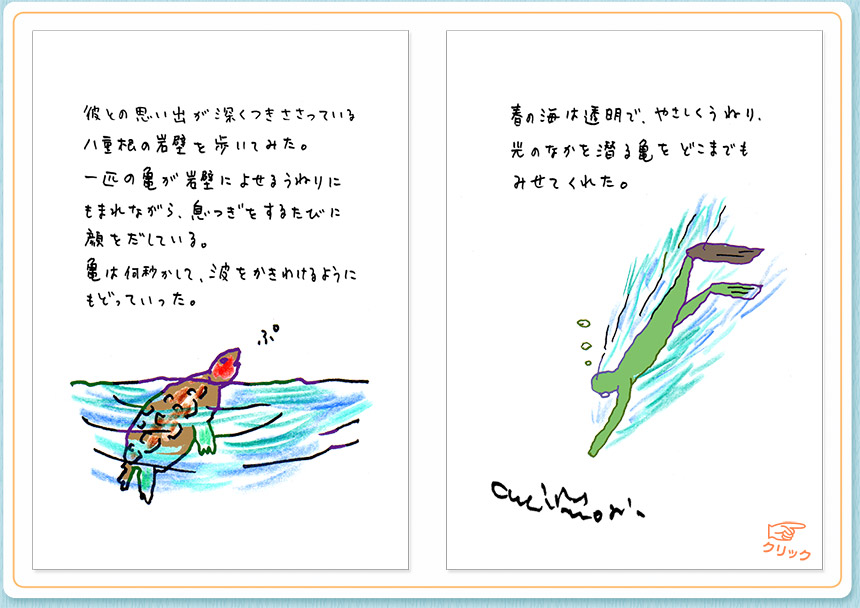 彼との思い出が深くつきささっている
八重根の岩壁を歩いてみた。
一匹の亀が岩壁によせるうねりに
もまれながら、息つぎをするたびに
顔をだしている。
亀は何秒かして、波をかきわけるように
もどっていった。
ぷ
春の海は透明で、やさしくうねり、
光のなかを潜る亀をどこまでも
みせてくれた。
クリック